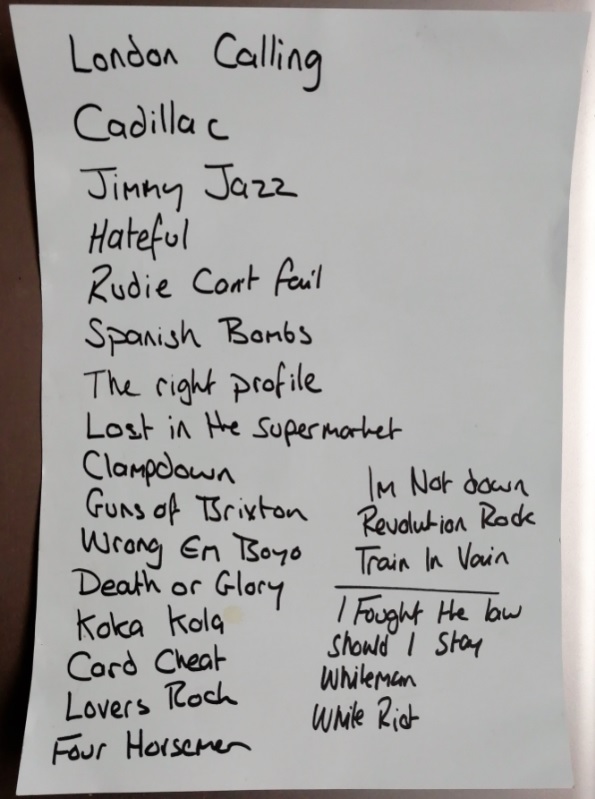 London Calling
Cadillac
Jimmy Jazz
Hateful
Rudie Cant fail
Spanish Bombs
The right profile
Lost in the supermarket
Clampdown
Guns of Brixton
Wrong Em Boyo
Death or Glory
Koka Kola
Card Cheat
Lovers Rock
Four Horsemen
Im Not down
Revolution Rock
Train In Vain
I Fought the law
should I stay
Whiteman
White Riot